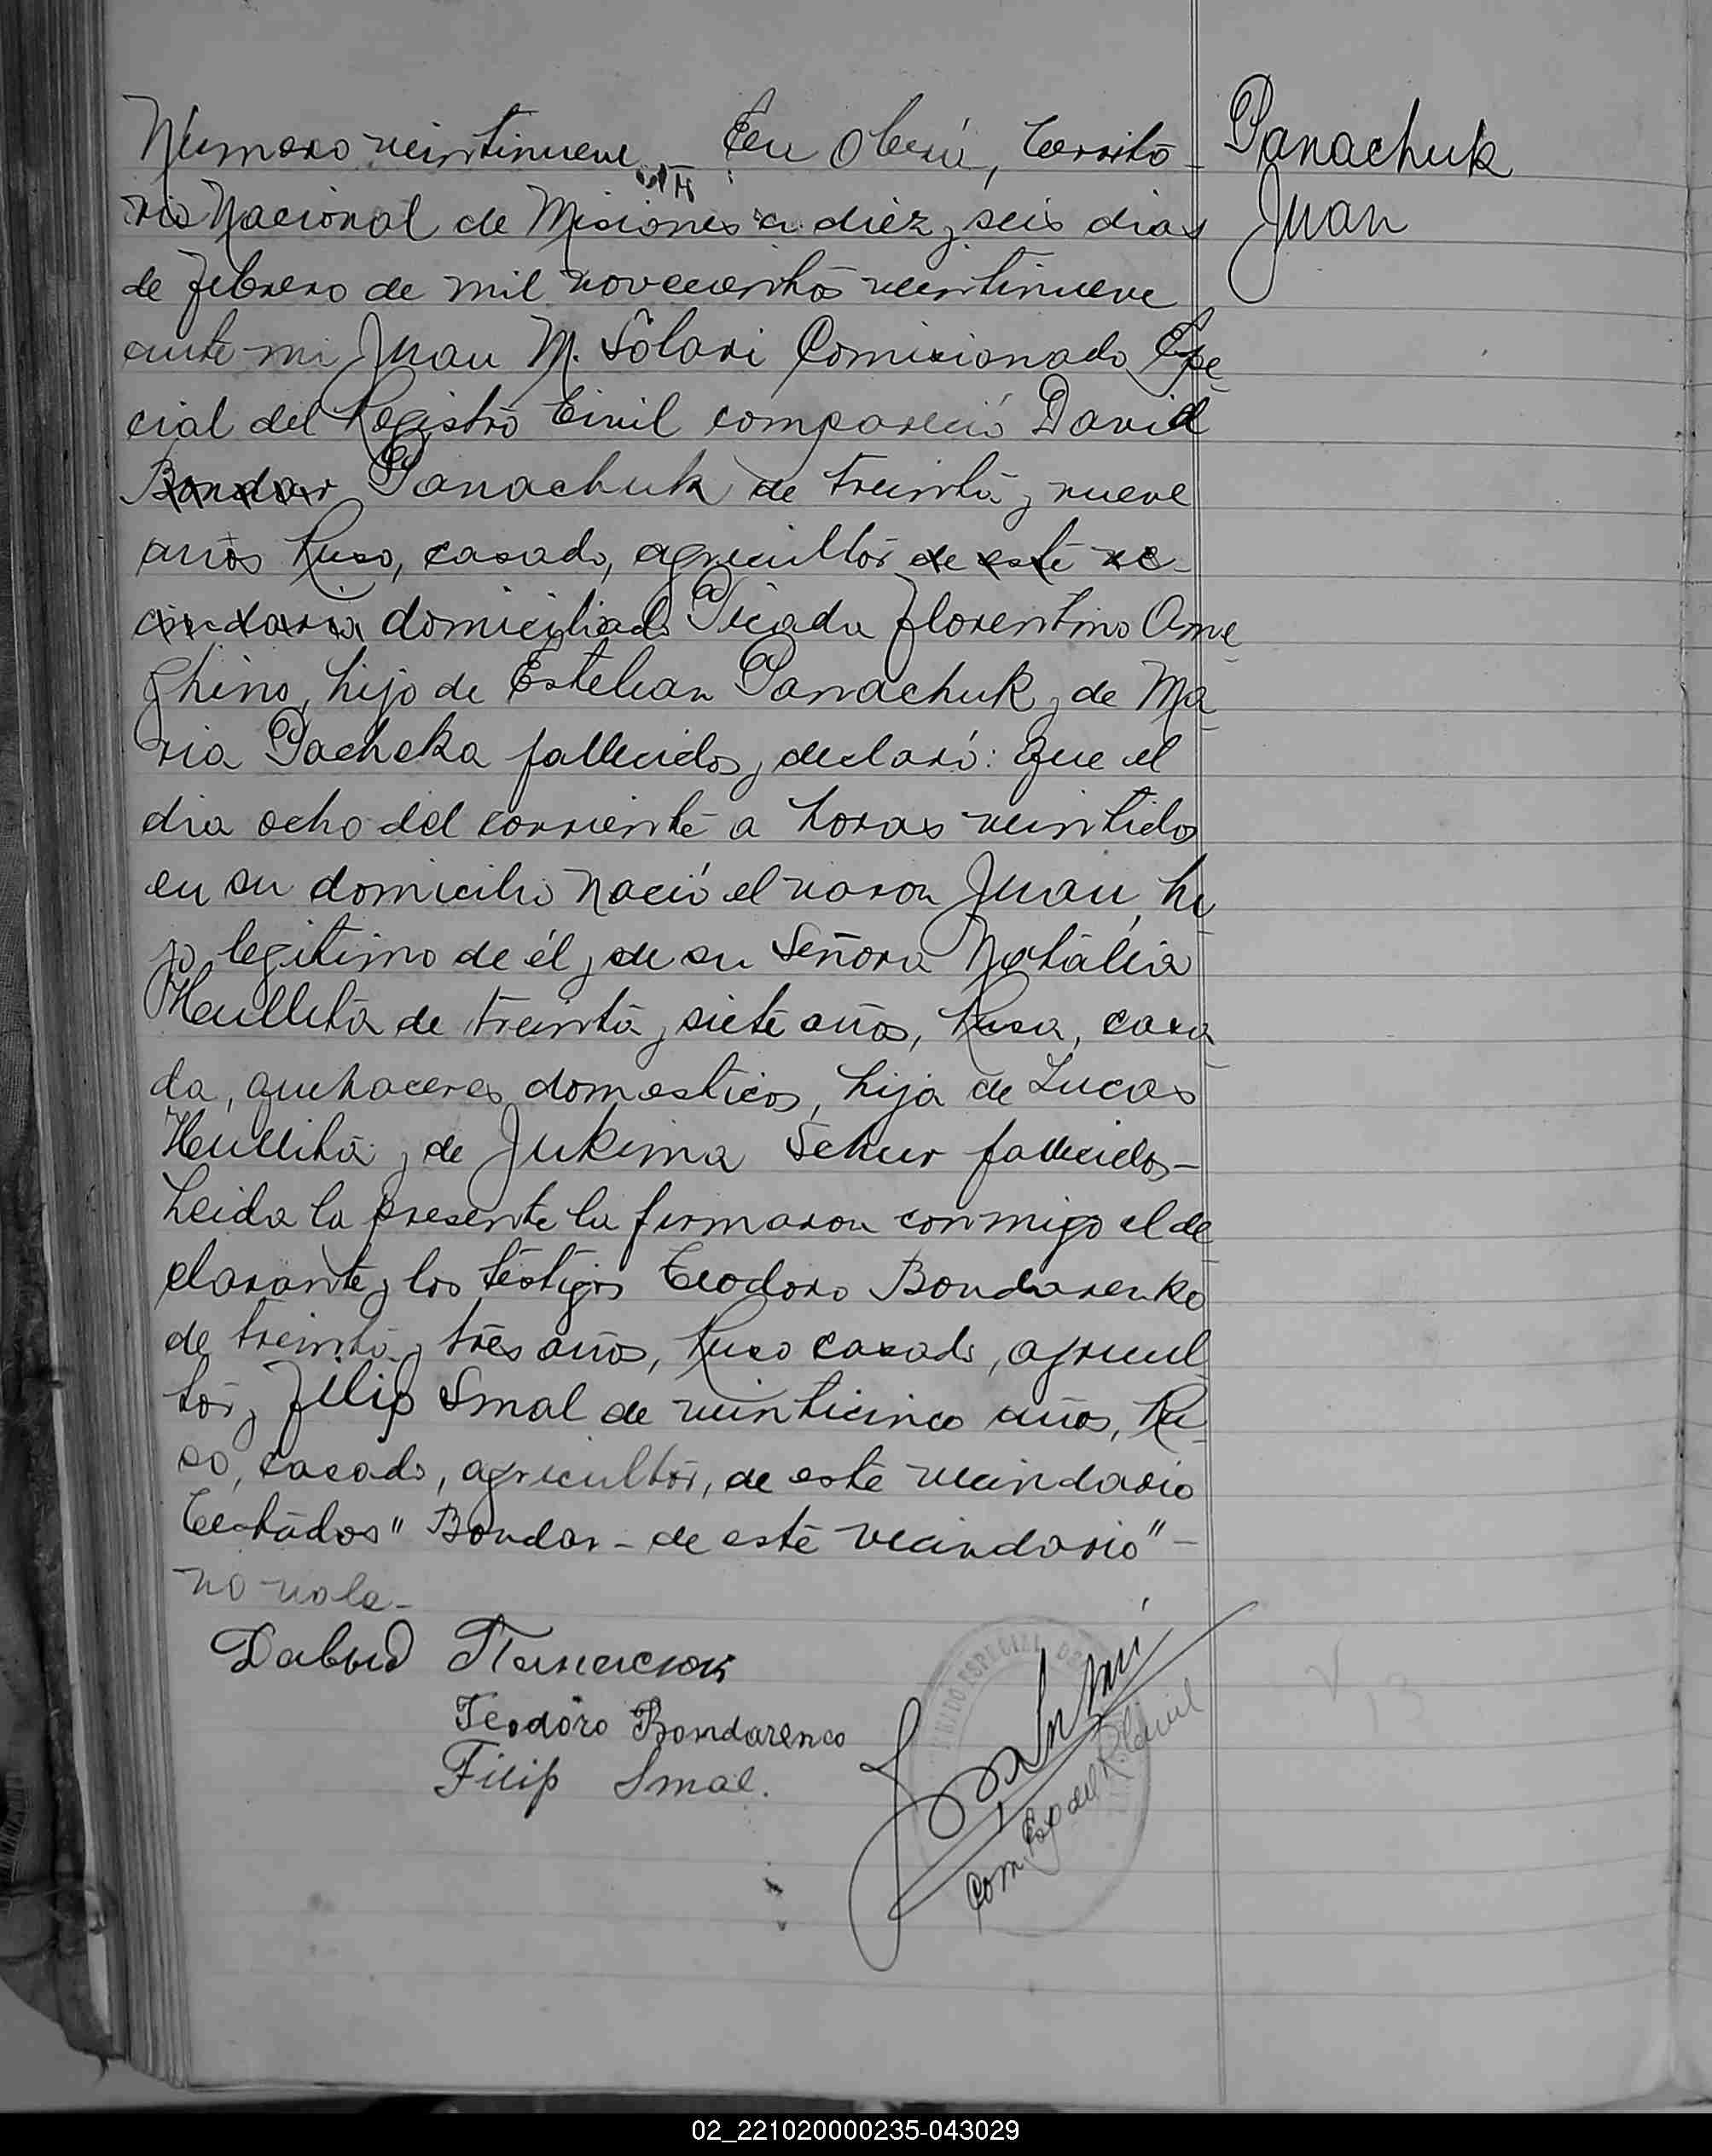 Número veintinueve. En Oberá, Territo-
rio Nacional de Misiones a diez y seis dias
de Febrero de mil novecientos veintinueve
ante mi Juan M. Solari Comisionado Espe-
cial del Registro Civil compareció David
Bondar Panachuk de treinta y nueve
años Ruso, casado, agricultor de este ve-
cindario domiciliado Picada Florentino Ame-
ghino, hijo de Esteban Panachuk y de Ma-
ria Pacheka fallecidos y declaró: Que el
dia ocho del corriente a horas veintidos
en su domicilio nació el varon Juan, hi-
jo legitimo de él y de su Señora Natalia
Hullita de treinta y siete años, Rusa, casa-
da, quehaceres domesticos, hija de Lucas
Hullita y de Jukima Schur fallecidos-
Leida la presente la firmaron conmigo el de-
clarante y los testigos Teodoro Bondarenko
de treinta y tres años, Ruso casado, agricul-
tor y Filip Smal de veinticinco años, Ru-
so, casado, agricultor, de este vecindario
Testados " Bondar - de este vecindario" -
no vale-
Давид
Teodoro Bondarenco
Filip Smal.
Com. Esp. del R. Civil
Panachuk
Juan
02_221020000235-043029